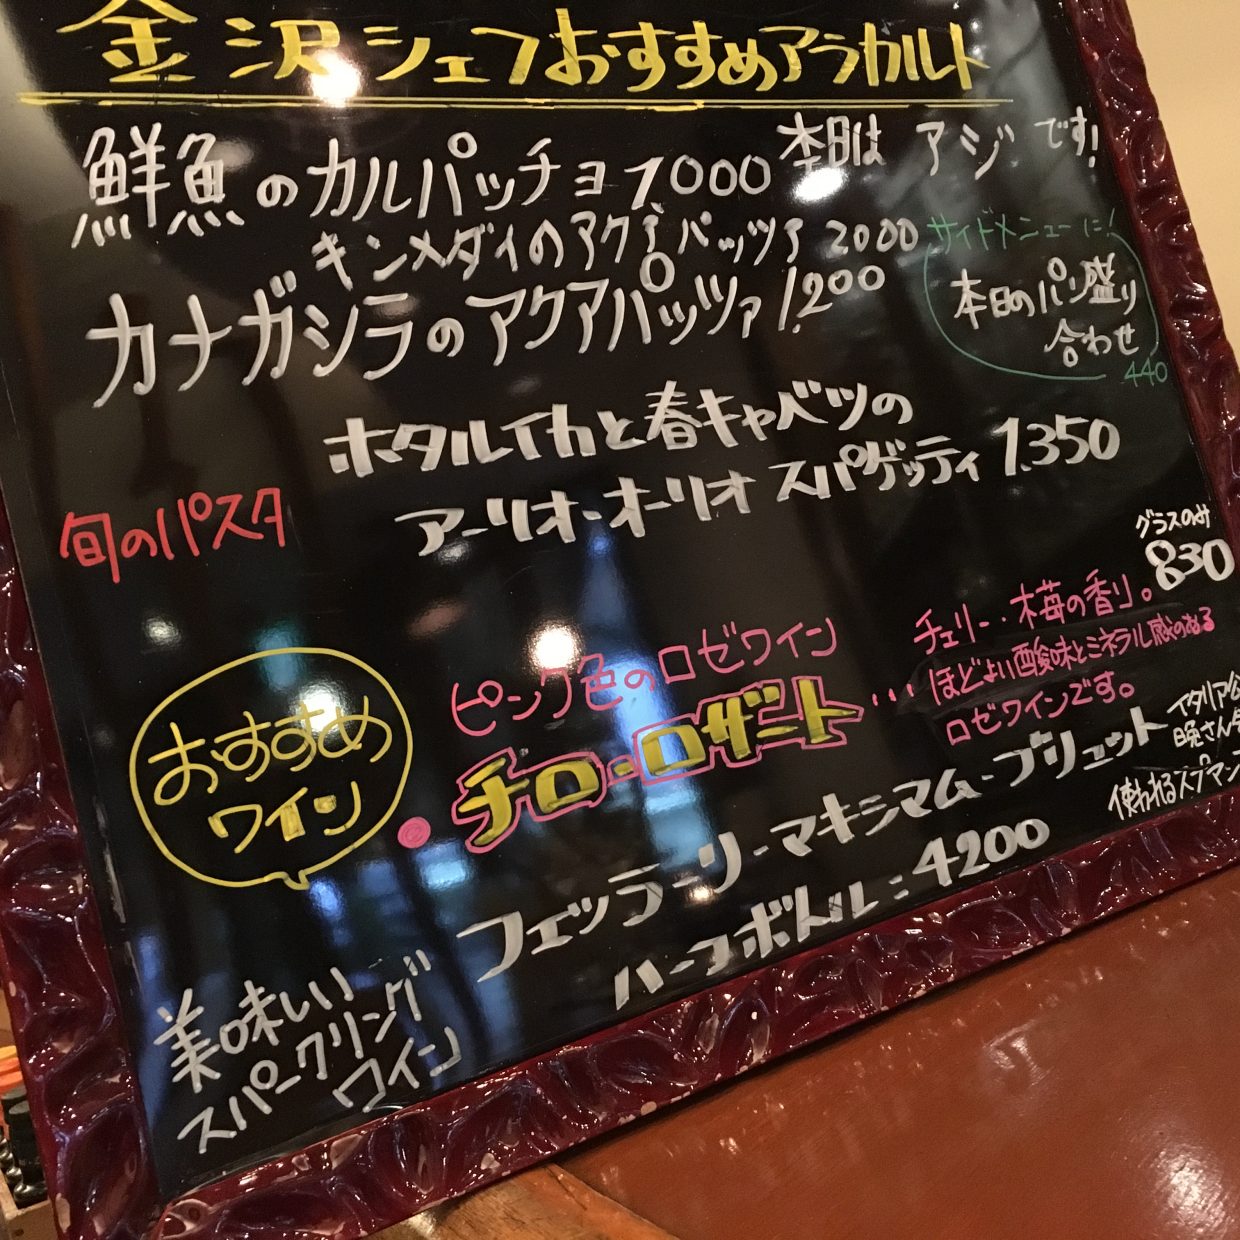 金沢シェフおすすめアラカルト
鮮魚のカルパッチョ 1,000 本日は アジ です!
キンメダイのアクアパッツァ 2000
カナガシラのアクアパッツァ 1,200
サイドメニューに!
本日のパン盛り
合わせ
440
旬のパスタ
ホタルイカと春キャベツの
アーリオ・オーリオ スパゲッティ 1,350
グラスのみ
830
おすすめ
ワイン
ピンク色のロゼワイン
・チロ・ロザート…
チェリー・木苺の香り。
ほどよい酸味とミネラル感のある
ロゼワインです。
美味しい
スパークリング
ワイン
フェッラーリ・マキシマム・ブリュット
ハーフボトル:4200
イタリア公
晩さん会
使われるスプマン